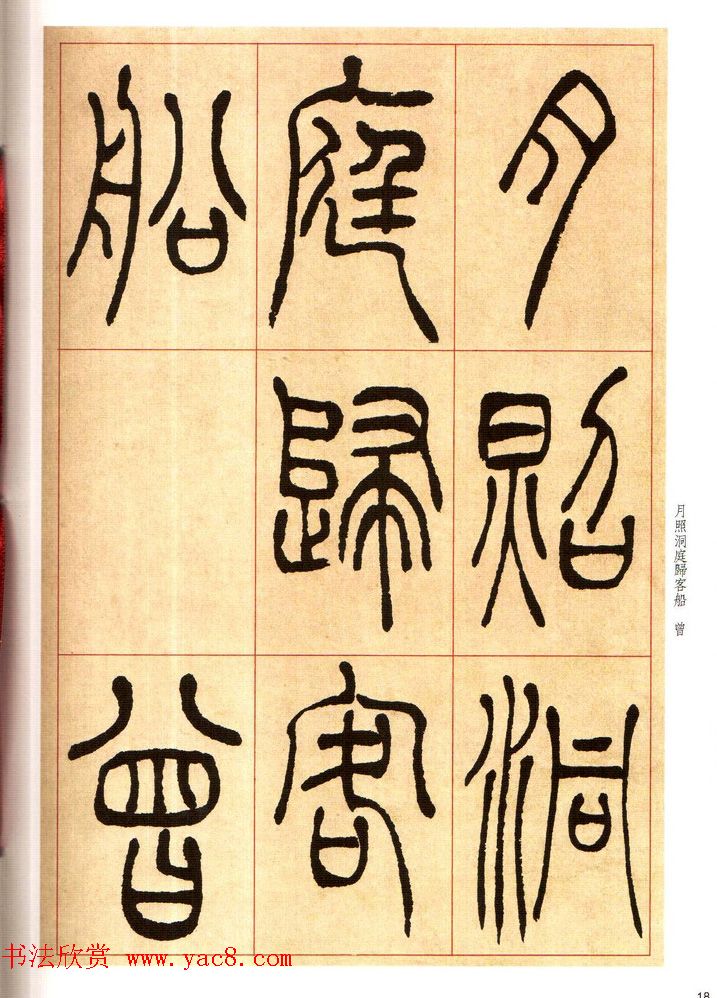 月照洞
庭歸客
船 曾
月照洞庭歸客船 曾
书法欣赏 www.yac8.com
18